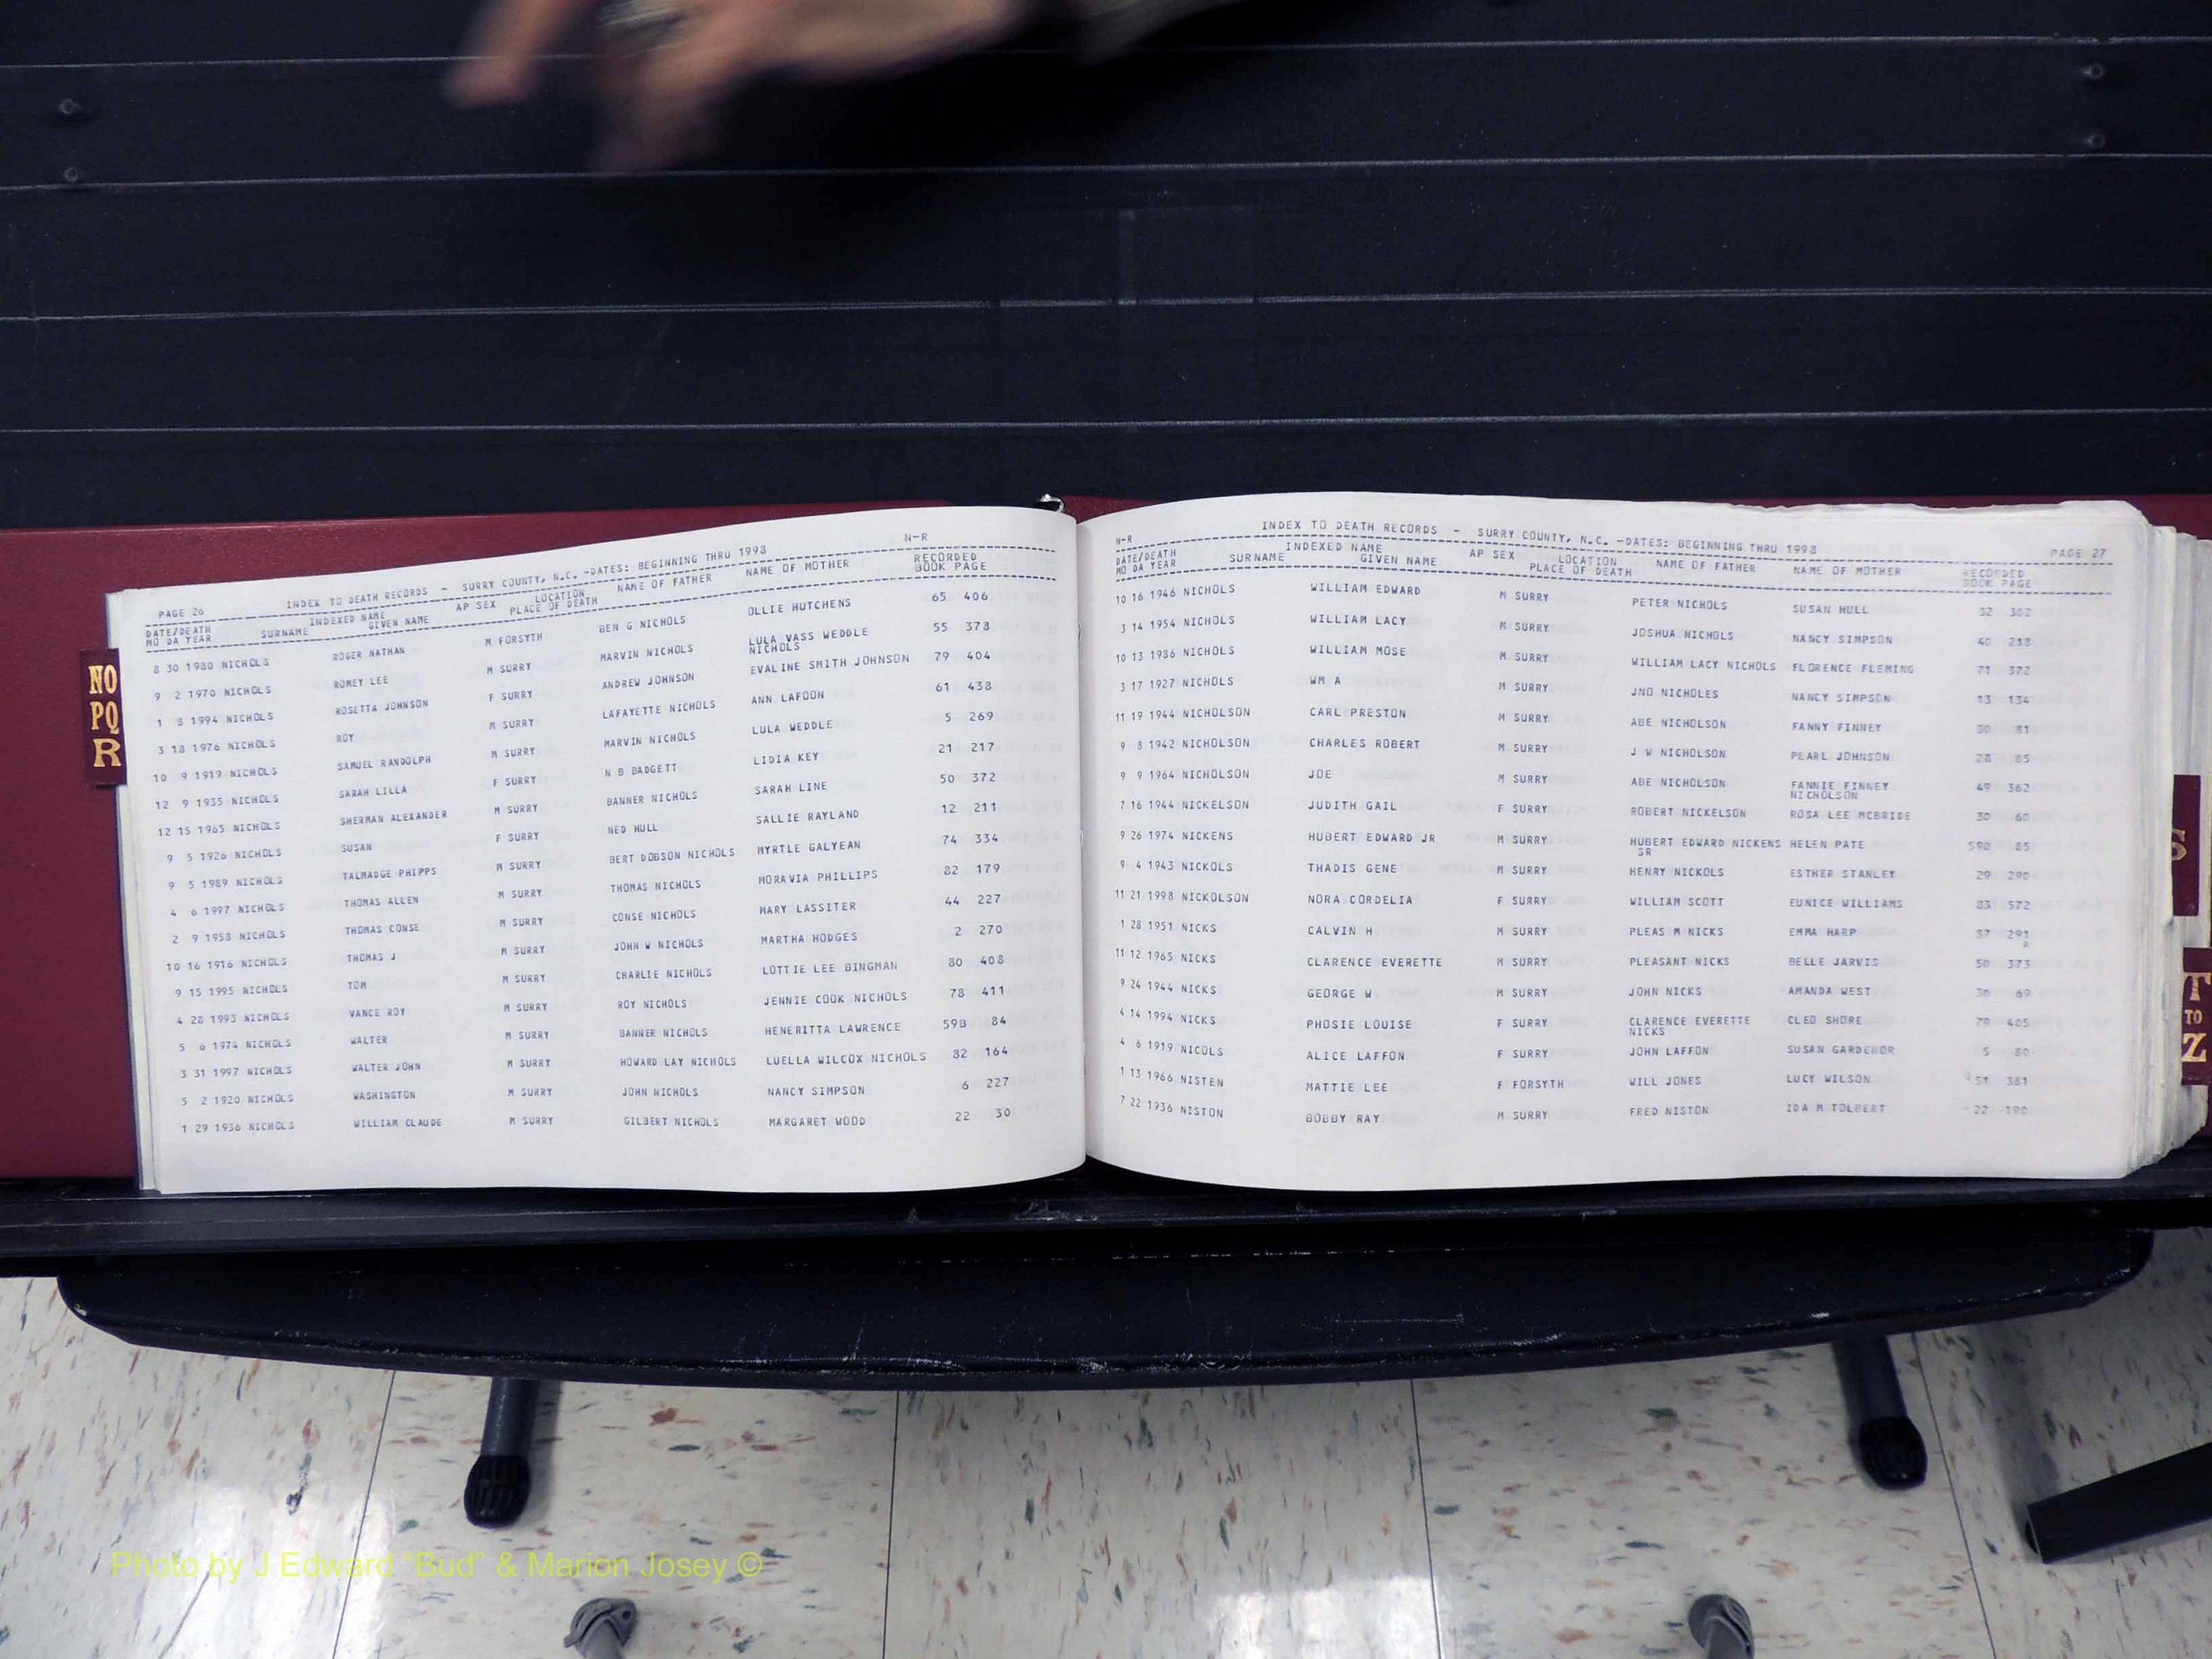 PAGE 26 INDEX TO DEATH RECORDS - SURRY COUNTY, N.C. -DATES: BEGINNING THRU 1998 N-R
DATE/DEATH INDEXED NAME AP SEX LOCATION NAME OF FATHER NAME OF MOTHER RECORDED
MO DA YEAR SURNAME GIVEN NAME PLACE OF DEATH BOOK PAGE
8 30 1980 NICHOLS ROGER NATHAN M FORSYTH BEN G NICHOLS OLLIE HUTCHENS 65 406
9 2 1970 NICHOLS ROMEY LEE M SURRY MARVIN NICHOLS LULA VASS WEDDLE 55 378
NICHOLS
1 8 1994 NICHOLS ROSETTA JOHNSON F SURRY ANDREW JOHNSON EVALINE SMITH JOHNSON 79 404
3 18 1976 NICHOLS ROY M SURRY LAFAYETTE NICHOLS ANN LAFOON 61 438
10 9 1919 NICHOLS SAMUEL RANDOLPH M SURRY MARVIN NICHOLS LULA WEDDLE 5 269
12 9 1935 NICHOLS SARAH LILLA F SURRY N B BADGETT LIDIA KEY 21 217
12 15 1965 NICHOLS SHERMAN ALEXANDER M SURRY BANNER NICHOLS SARAH LINE 50 372
9 5 1926 NICHOLS SUSAN F SURRY NED HULL SALLIE RAYLAND 12 211
9 5 1989 NICHOLS TALMADGE PHIPPS M SURRY BERT DOBSON NICHOLS MYRTLE GALYEAN 74 334
4 6 1997 NICHOLS THOMAS ALLEN M SURRY THOMAS NICHOLS MORAVIA PHILLIPS 82 179
2 9 1958 NICHOLS THOMAS CONSE M SURRY CONSE NICHOLS MARY LASSITER 44 227
10 16 1916 NICHOLS THOMAS J M SURRY JOHN W NICHOLS MARTHA HODGES 2 270
9 15 1995 NICHOLS TOM M SURRY CHARLIE NICHOLS LOTTIE LEE BINGMAN 80 408
4 28 1993 NICHOLS VANCE ROY M SURRY ROY NICHOLS JENNIE COOK NICHOLS 78 411
5 6 1974 NICHOLS WALTER M SURRY BANNER NICHOLS HENERITTA LAWRENCE 59B 84
3 31 1997 NICHOLS WALTER JOHN M SURRY HOWARD LAY NICHOLS LUELLA WILCOX NICHOLS 82 164
5 2 1920 NICHOLS WASHINGTON M SURRY JOHN NICHOLS NANCY SIMPSON 6 227
1 29 1936 NICHOLS WILLIAM CLAUDE M SURRY GILBERT NICHOLS MARGARET WOOD 22 30
NO
PQ
R
N-R INDEX TO DEATH RECORDS - SURRY COUNTY, N.C. -DATES: BEGINNING THRU 1998 PAGE 27
DATE/DEATH INDEXED NAME AP SEX LOCATION NAME OF FATHER NAME OF MOTHER RECORDED
MO DA YEAR SURNAME GIVEN NAME PLACE OF DEATH BOOK PAGE
10 16 1946 NICHOLS WILLIAM EDWARD M SURRY PETER NICHOLS SUSAN HULL 32
3 14 1954 NICHOLS WILLIAM LACY M SURRY JOSHUA NICHOLS NANCY SIMPSON 40 218
10 13 1986 NICHOLS WILLIAM MOSE M SURRY WILLIAM LACY NICHOLS FLORENCE FLEMING 71 372
3 17 1927 NICHOLS WM A M SURRY JNO NICHOLES NANCY SIMPSON 13 134
11 19 1944 NICHOLSON CARL PRESTON M SURRY ABE NICHOLSON FANNY FINNEY 30 81
9 8 1942 NICHOLSON CHARLES ROBERT M SURRY J W NICHOLSON PEARL JOHNSON 28 85
9 9 1964 NICHOLSON JOE M SURRY ABE NICHOLSON FANNIE FINNEY 49 362
NICHOLSON
7 16 1944 NICKELSON JUDITH GAIL F SURRY ROBERT NICKELSON ROSA LEE MCBRIDE 30 60
9 26 1974 NICKENS HUBERT EDWARD JR M SURRY HUBERT EDWARD NICKENS HELEN PATE 59B 85
SR
9 4 1943 NICKOLS THADIS GENE M SURRY HENRY NICKOLS ESTHER STANLEY 29 290
11 21 1998 NICKOLSON NORA CORDELIA F SURRY WILLIAM SCOTT EUNICE WILLIAMS 83 572
1 28 1951 NICKS CALVIN H M SURRY PLEAS M NICKS EMMA HARP 37 291
11 12 1965 NICKS CLARENCE EVERETTE M SURRY PLEASANT NICKS BELLE JARVIS 50 373
9 24 1944 NICKS GEORGE W M SURRY JOHN NICKS AMANDA WEST 30 69
4 14 1994 NICKS PHOSIE LOUISE F SURRY CLARENCE EVERETTE CLEO SHORE 79 405
NICKS
4 6 1919 NICOLS ALICE LAFFON F SURRY JOHN LAFFON SUSAN GARDENOR 5 80
1 13 1966 NISTEN MATTIE LEE F FORSYTH WILL JONES LUCY WILSON 51 381
7 22 1936 NISTON BOBBY RAY M SURRY FRED NISTON IDA M TOLBERT 22 190
S
T
TO
Z
Photo by J Edward "Bud" & Marion Josey ©